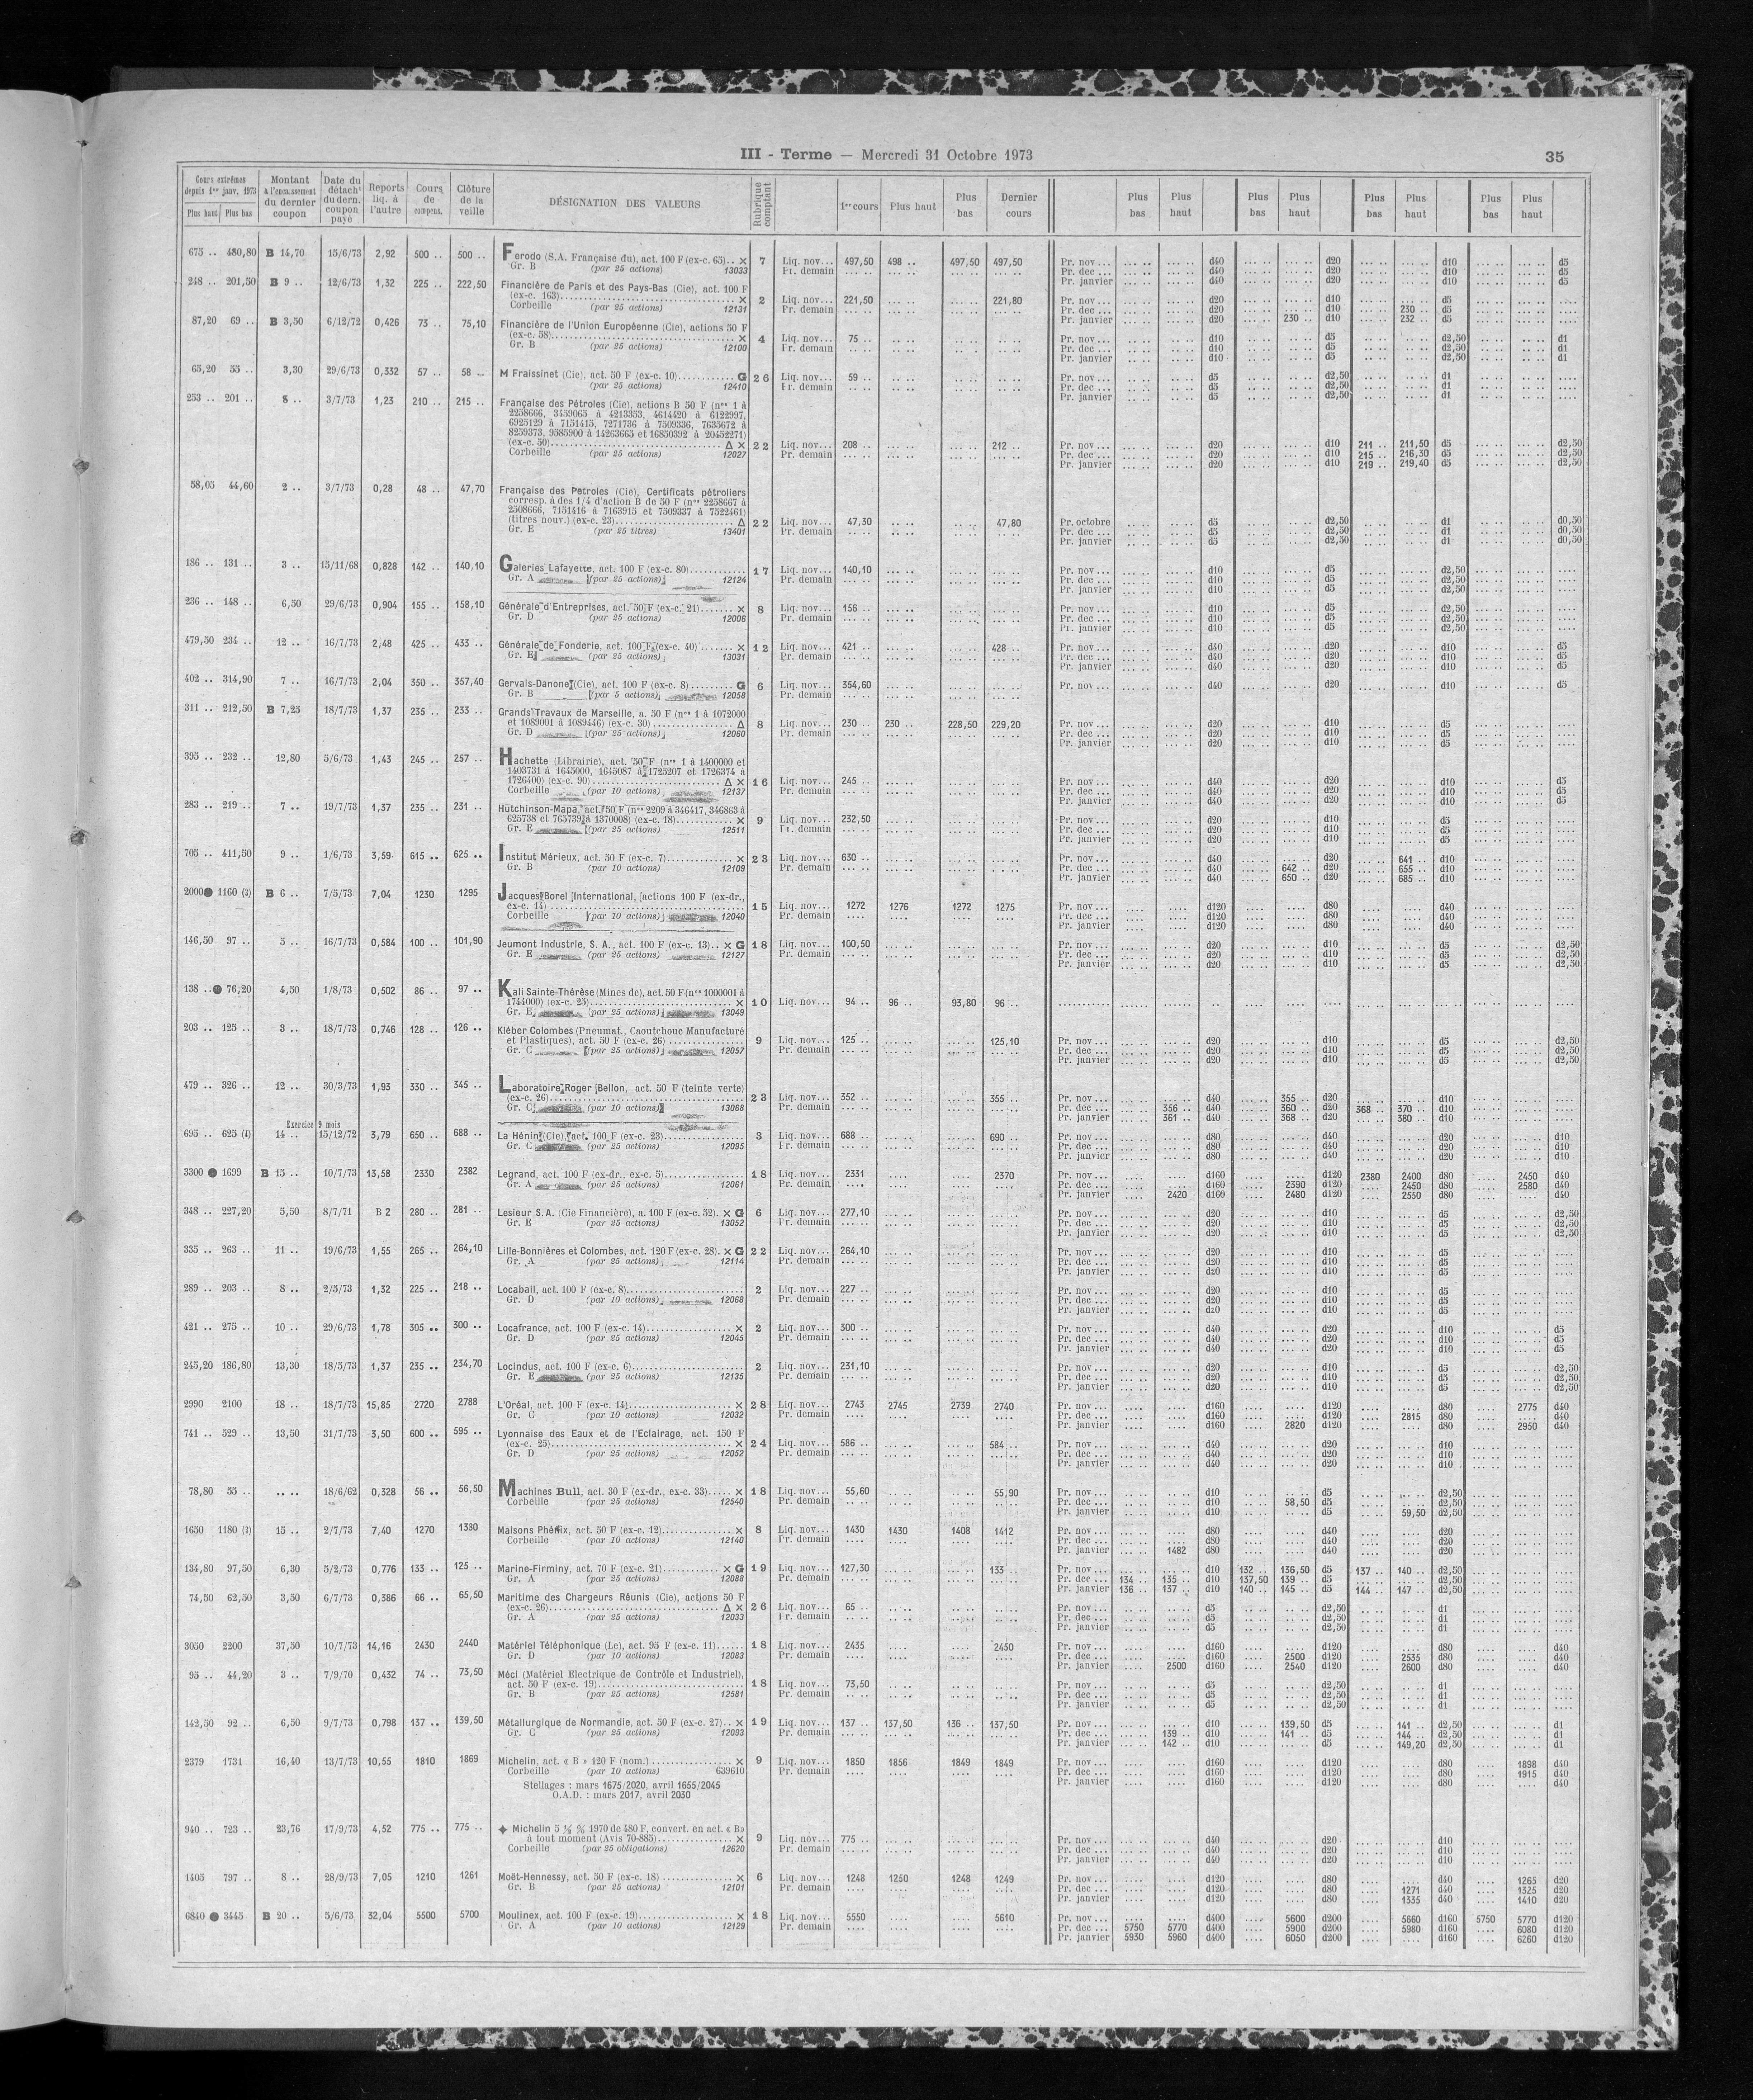 III - Terme — Mercredi 31 Octobre 1973
35
Cours extrêmes depuis 1er janv. 1973 Plus haut Plus bas
Montant à l'encaissement du dernier coupon
Date du détacht du dern. coupon payé
Reports liq. à l'autre
Cours de compens.
Clôture de la veille
DÉSIGNATION DES VALEURS
Rubrique comptant
1er cours Plus haut Plus bas Dernier cours
Plus bas Plus haut Plus bas Plus haut Plus bas Plus haut Plus bas Plus haut
675 .. 480,80 B 14,70 15/6/73 2,92 500 .. 500 .. Ferodo (S.A. Française du), act. 100 F (ex-c. 65).. × 7 Liq. nov... 497,50 498 .. 497,50 497,50 Pr. nov... d40 d20 d10 d5
Gr. B (par 25 actions) 13033 Pr. demain Pr. dec ... d40 d20 d10 d5
Pr. janvier d40 d20 d10 d5
248 .. 201,50 B 9 .. 12/6/73 1,32 225 .. 222,50 Financière de Paris et des Pays-Bas (Cie), act. 100 F
(ex-c. 163)... × 2 Liq. nov... 221,50 221,80 Pr. nov... d20 d10 d5
Corbeille (par 25 actions) 12131 Pr. demain Pr. dec ... d20 d10 230 .. d5
Pr. janvier d20 230 .. d10 232 .. d5
87,20 69 .. B 3,50 6/12/72 0,426 73 .. 75,10 Financière de l'Union Européenne (Cie), actions 50 F
(ex-c. 58)... × 4 Liq. nov... 75 .. Pr. nov... d10 d5 d2,50 d1
Gr. B (par 25 actions) 12100 Pr. demain Pr. dec ... d10 d5 d2,50 d1
Pr. janvier d10 d5 d2,50 d1
65,20 55 .. 3,30 29/6/73 0,332 57 .. 58 .. M Fraissinet (Cie), act. 50 F (ex-c. 10)... G 26 Liq. nov... 59 .. Pr. nov... d5 d2,50 d1
(par 25 actions) 12410 Pr. demain Pr. dec ... d5 d2,50 d1
Pr. janvier d5 d2,50 d1
253 .. 201 .. 8 .. 3/7/73 1,23 210 .. 215 .. Française des Pétroles (Cie), actions B 50 F (nos 1 à
2258666, 3459065 à 4213353, 4614420 à 6122997,
6925129 à 7151415, 7271736 à 7509336, 7635672 à
8259373, 9585900 à 14263665 et 16850392 à 20452271)
(ex-c. 50)... Δ × 22 Liq. nov... 208 .. 212 .. Pr. nov... d20 d10 211 .. 211,50 d5 d2,50
Corbeille (par 25 actions) 12027 Pr. demain Pr. dec ... d20 d10 215 .. 216,30 d5 d2,50
Pr. janvier d20 d10 219 .. 219,40 d5 d2,50
58,05 44,60 2 .. 3/7/73 0,28 48 .. 47,70 Française des Petroles (Cie), Certificats pétroliers
corresp. à des 1/4 d'action B de 50 F (nos 2258667 à
2508666, 7151416 à 7163915 et 7509337 à 7522461)
(titres nouv.) (ex-c. 23)... Δ 22 Liq. nov... 47,30 47,80 Pr. octobre d5 d2,50 d1 d0,50
Gr. E (par 25 titres) 13401 Pr. demain Pr. dec ... d5 d2,50 d1 d0,50
Pr. janvier d5 d2,50 d1 d0,50
186 .. 131 .. 3 .. 15/11/68 0,828 142 .. 140,10 Galeries Lafayette, act. 100 F (ex-c. 80)... 17 Liq. nov... 140,10 Pr. nov... d10 d5 d2,50
Gr. A (par 25 actions) 12124 Pr. demain Pr. dec ... d10 d5 d2,50
Pr. janvier d10 d5 d2,50
236 .. 148 .. 6,50 29/6/73 0,904 155 .. 158,10 Générale d'Entreprises, act. 50 F (ex-c. 21)... × 8 Liq. nov... 156 .. Pr. nov... d10 d5 d2,50
Gr. D (par 25 actions) 12006 Pr. demain Pr. dec ... d10 d5 d2,50
Pr. janvier d10 d5 d2,50
479,50 234 .. 12 .. 16/7/73 2,48 425 .. 433 .. Générale de Fonderie, act. 100 F (ex-c. 40)... × 12 Liq. nov... 421 .. 428 .. Pr. nov... d40 d20 d10 d5
Gr. E (par 25 actions) 13031 Pr. demain Pr. dec ... d40 d20 d10 d5
Pr. janvier d40 d20 d10 d5
402 .. 314,90 7 .. 16/7/73 2,04 350 .. 357,40 Gervais-Danone (Cie), act. 100 F (ex-c. 8)... G 6 Liq. nov... 354,60 Pr. nov... d40 d20 d10 d5
Gr. B (par 5 actions) 12058 Pr. demain
311 .. 212,50 B 7,25 18/7/73 1,37 235 .. 233 .. Grands Travaux de Marseille, a. 50 F (nos 1 à 1072000
et 1089001 à 1089446) (ex-c. 30)... Δ 8 Liq. nov... 230 .. 230 .. 228,50 229,20 Pr. nov... d20 d10 d5
Gr. D (par 25 actions) 12060 Pr. demain Pr. dec ... d20 d10 d5
Pr. janvier d20 d10 d5
395 .. 232 .. 12,80 5/6/73 1,43 245 .. 257 .. Hachette (Librairie), act. 50 F (nos 1 à 1400000 et
1403731 à 1645000, 1645087 à 1725207 et 1726374 à
1726400) (ex-c. 90)... Δ × 16 Liq. nov... 245 .. Pr. nov... d40 d20 d10 d5
Corbeille (par 10 actions) 12137 Pr. demain Pr. dec ... d40 d20 d10 d5
Pr. janvier d40 d20 d10 d5
283 .. 219 .. 7 .. 19/7/73 1,37 235 .. 231 .. Hutchinson-Mapa, act. 50 F (nos 2209 à 346417, 346863 à
625738 et 765739 à 1370008) (ex-c. 18)... × 9 Liq. nov... 232,50 Pr. nov... d20 d10 d5
Gr. E (par 25 actions) 12511 Pr. demain Pr. dec ... d20 d10 d5
Pr. janvier d20 d10 d5
705 .. 411,50 9 .. 1/6/73 3,59 615 .. 625 .. Institut Mérieux, act. 50 F (ex-c. 7)... × 23 Liq. nov... 630 .. Pr. nov... d40 d20 641 .. d10
Gr. B (par 10 actions) 12109 Pr. demain Pr. dec ... d40 642 .. d20 655 .. d10
Pr. janvier d40 650 .. d20 685 .. d10
2000● 1160 (3) B 6 .. 7/5/73 7,04 1230 1295 Jacques Borel International, actions 100 F (ex-dr.,
ex-c. 14)... 15 Liq. nov... 1272 1276 1272 1275 Pr. nov... d120 d80 d40
Corbeille (par 10 actions) 12040 Pr. demain Pr. dec ... d120 d80 d40
Pr. janvier d120 d80 d40
146,50 97 .. 5 .. 16/7/73 0,584 100 .. 101,90 Jeumont Industrie, S. A., act. 100 F (ex-c. 13).. × G 18 Liq. nov... 100,50 Pr. nov... d20 d10 d5 d2,50
Gr. E (par 25 actions) 12127 Pr. demain Pr. dec ... d20 d10 d5 d2,50
Pr. janvier d20 d10 d5 d2,50
138 .. ● 76,20 4,50 1/8/73 0,502 86 .. 97 .. Kali Sainte-Thérèse (Mines de), act. 50 F (nos 1000001 à
1744000) (ex-c. 25)... × 10 Liq. nov... 94 .. 96 .. 93,80 96 ..
Gr. E (par 25 actions) 13049
203 .. 125 .. 3 .. 18/7/73 0,746 128 .. 126 .. Kléber Colombes (Pneumat., Caoutchouc Manufacturé
et Plastiques), act. 50 F (ex-c. 26)... 9 Liq. nov... 125 .. 125,10 Pr. nov... d20 d10 d5 d2,50
Gr. C (par 25 actions) 12057 Pr. demain Pr. dec ... d20 d10 d5 d2,50
Pr. janvier d20 d10 d5 d2,50
479 .. 326 .. 12 .. 30/3/73 1,93 330 .. 345 .. Laboratoire Roger Bellon, act. 50 F (teinte verte)
(ex-c. 26)... 23 Liq. nov... 352 .. 355 .. Pr. nov... d40 355 .. d20 d10
Gr. C (par 10 actions) 13068 Pr. demain Pr. dec ... 356 .. d40 360 .. d20 368 .. 370 .. d10
Pr. janvier 361 .. d40 368 .. d20 380 .. d10
Exercice 9 mois
695 .. 625 (4) 14 .. 15/12/72 3,79 650 .. 688 .. La Hénin (Cie), act. 100 F (ex-c. 23)... 3 Liq. nov... 688 .. 690 .. Pr. nov... d80 d40 d20 d10
Gr. C (par 25 actions) 12095 Pr. demain Pr. dec ... d80 d40 d20 d10
Pr. janvier d80 d40 d20 d10
3300 ● 1699 B 15 .. 10/7/73 13,58 2330 2382 Legrand, act. 100 F (ex-dr., ex-c. 5)... 18 Liq. nov... 2331 2370 Pr. nov... d160 d120 2380 2400 d80 2450 d40
Gr. A (par 25 actions) 12061 Pr. demain Pr. dec ... d160 2390 d120 2450 d80 2580 d40
Pr. janvier 2420 d160 2480 d120 2550 d80 d40
348 .. 227,20 5,50 8/7/71 B 2 280 .. 281 .. Lesieur S.A. (Cie Financière), a. 100 F (ex-c. 52). × G 6 Liq. nov... 277,10 Pr. nov... d20 d10 d5 d2,50
Gr. E (par 25 actions) 13052 Pr. demain Pr. dec ... d20 d10 d5 d2,50
Pr. janvier d20 d10 d5 d2,50
335 .. 263 .. 11 .. 19/6/73 1,55 265 .. 264,10 Lille-Bonnières et Colombes, act. 120 F (ex-c. 28). × G 22 Liq. nov... 264,10 Pr. nov... d20 d10 d5
Gr. A (par 25 actions) 12114 Pr. demain Pr. dec ... d20 d10 d5
Pr. janvier d20 d10 d5
289 .. 203 .. 8 .. 2/5/73 1,32 225 .. 218 .. Locabail, act. 100 F (ex-c. 8)... 2 Liq. nov... 227 .. Pr. nov... d20 d10 d5
Gr. D (par 10 actions) 12068 Pr. demain Pr. dec ... d20 d10 d5
Pr. janvier d20 d10 d5
421 .. 275 .. 10 .. 29/6/73 1,78 305 .. 300 .. Locafrance, act. 100 F (ex-c. 14)... × 2 Liq. nov... 300 .. Pr. nov... d40 d20 d10 d5
Gr. D (par 25 actions) 12045 Pr. demain Pr. dec ... d40 d20 d10 d5
Pr. janvier d40 d20 d10 d5
245,20 186,80 13,30 18/5/73 1,37 235 .. 234,70 Locindus, act. 100 F (ex-c. 6)... 2 Liq. nov... 231,10 Pr. nov... d20 d10 d5 d2,50
Gr. E (par 25 actions) 12135 Pr. demain Pr. dec ... d20 d10 d5 d2,50
Pr. janvier d20 d10 d5 d2,50
2990 2100 18 .. 18/7/73 15,85 2720 2788 L'Oréal, act. 100 F (ex-c. 14)... × 28 Liq. nov... 2743 2745 2739 2740 Pr. nov... d160 d120 d80 2775 d40
Gr. C (par 10 actions) 12032 Pr. demain Pr. dec ... d160 d120 2815 d80 d40
Pr. janvier d160 2820 d120 d80 2950 d40
741 .. 529 .. 13,50 31/7/73 3,50 600 .. 595 .. Lyonnaise des Eaux et de l'Eclairage, act. 150 F
(ex-c. 25)... × 24 Liq. nov... 586 .. 584 .. Pr. nov... d40 d20 d10
Gr. D (par 25 actions) 12052 Pr. demain Pr. dec ... d40 d20 d10
Pr. janvier d40 d20 d10
78,80 55 .. .. .. 18/6/62 0,328 56 .. 56,50 Machines Bull, act. 30 F (ex-dr., ex-c. 33)... × 18 Liq. nov... 55,60 55,90 Pr. nov... d10 d5 d2,50
Corbeille (par 25 actions) 12540 Pr. demain Pr. dec ... d10 58,50 d5 d2,50
Pr. janvier d10 d5 59,50 d2,50
1650 1180 (3) 15 .. 2/7/73 7,40 1270 1380 Maisons Phénix, act. 50 F (ex-c. 12)... × 8 Liq. nov... 1430 1430 1408 1412 Pr. nov... d80 d40 d20
Corbeille (par 10 actions) 12140 Pr. demain Pr. dec ... d80 d40 d20
Pr. janvier 1482 d80 d40 d20
134,80 97,50 6,30 5/2/73 0,776 133 .. 125 .. Marine-Firminy, act. 70 F (ex-c. 21)... × G 19 Liq. nov... 127,30 133 .. Pr. nov... d10 132 .. 136,50 d5 137 .. 140 .. d2,50
Gr. A (par 25 actions) 12088 Pr. demain Pr. dec ... 134 .. 135 .. d10 137,50 139 .. d5 d2,50
Pr. janvier 136 .. 137 .. d10 140 .. 145 .. d5 144 .. 147 .. d2,50
74,50 62,50 3,50 6/7/73 0,386 66 .. 65,50 Maritime des Chargeurs Réunis (Cie), actions 50 F
(ex-c. 26)... Δ × 26 Liq. nov... 65 .. Pr. nov... d5 d2,50 d1
Gr. A (par 25 actions) 12033 Pr. demain Pr. dec ... d5 d2,50 d1
Pr. janvier d5 d2,50 d1
3050 2200 37,50 10/7/73 14,16 2430 2440 Matériel Téléphonique (Le), act. 95 F (ex-c. 11)... 18 Liq. nov... 2435 2450 Pr. nov... d160 d120 d80 d40
Gr. D (par 25 actions) 12083 Pr. demain Pr. dec ... d160 2500 d120 2535 d80 d40
Pr. janvier 2500 d160 2540 d120 2600 d80 d40
95 .. 44,20 3 .. 7/9/70 0,432 74 .. 73,50 Méci (Matériel Electrique de Contrôle et Industriel),
act. 50 F (ex-c. 19)... 18 Liq. nov... 73,50 Pr. nov... d5 d2,50 d1
Gr. B (par 25 actions) 12581 Pr. demain Pr. dec ... d5 d2,50 d1
Pr. janvier d5 d2,50 d1
142,50 92 .. 6,50 9/7/73 0,798 137 .. 139,50 Métallurgique de Normandie, act. 50 F (ex-c. 27).. × 19 Liq. nov... 137 .. 137,50 136 .. 137,50 Pr. nov... d10 139,50 d5 141 .. d2,50 d1
Gr. C (par 25 actions) 12093 Pr. demain Pr. dec ... 139 .. d10 141 .. d5 144 .. d2,50 d1
Pr. janvier 142 .. d10 d5 149,20 d2,50 d1
2379 1731 16,40 13/7/73 10,55 1810 1869 Michelin, act. « B » 120 F (nom.)... × 9 Liq. nov... 1850 1856 1849 1849 Pr. nov... d160 d120 d80 1898 d40
Corbeille (par 10 actions) 639610 Pr. demain Pr. dec ... d160 d120 d80 1915 d40
Stellages : mars 1675/2020, avril 1655/2045 Pr. janvier d160 d120 d80 d40
O.A.D. : mars 2017, avril 2030
940 .. 723 .. 23,76 17/9/73 4,52 775 .. 775 .. ✦ Michelin 5 ½ % 1970 de 480 F, convert. en act. « B»
à tout moment (Avis 70-885)... × 9 Liq. nov... 775 .. Pr. nov... d40 d20 d10
Corbeille (par 25 obligations) 12620 Pr. demain Pr. dec ... d40 d20 d10
Pr. janvier d40 d20 d10
1405 797 .. 8 .. 28/9/73 7,05 1210 1261 Moët-Hennessy, act. 50 F (ex-c. 18)... × 6 Liq. nov... 1248 1250 1248 1249 Pr. nov... d120 d80 d40 1265 d20
Gr. B (par 25 actions) 12101 Pr. demain Pr. dec ... d120 d80 1271 d40 1325 d20
Pr. janvier d120 d80 1335 d40 1410 d20
6840 ● 3445 B 20 .. 5/6/73 32,04 5500 5700 Moulinex, act. 100 F (ex-c. 19)... × 18 Liq. nov... 5550 5610 Pr. nov... d400 5600 d200 5660 d160 5750 5770 d120
Gr. A (par 10 actions) 12129 Pr. demain Pr. dec ... 5750 5770 d400 5900 d200 5980 d160 6080 d120
Pr. janvier 5930 5960 d400 6050 d200 d160 6260 d120